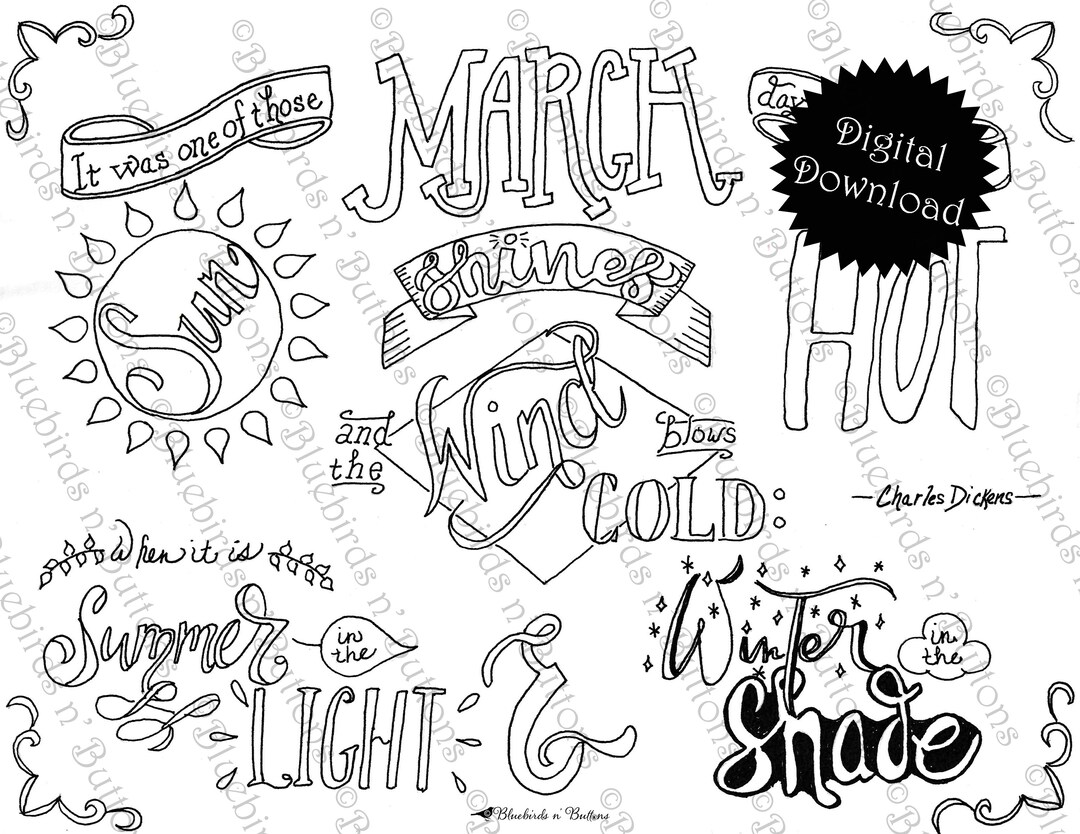 It was one of those
MARCH
day
Digital
Download
Sun
Shines
HOT
and
the
Wind
blows
COLD:
—Charles Dickens—
When it is
Summer
in
the
LIGHT
&
Winter
in
the
Shade
Bluebirds n' Buttons
©Bluebirds n' Buttons